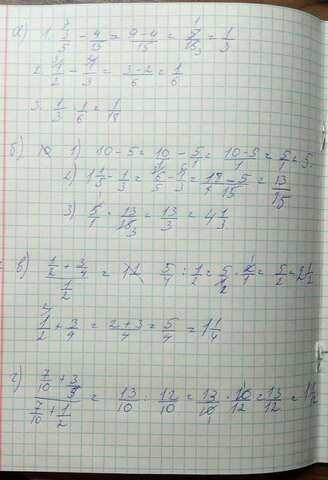 а) 1. 3/5 - 4/15 = (9-4)/15 = 5/15 = 1/3
2. 1/2 - 1/3 = (3-2)/6 = 1/6
3. 1/3 · 1/6 = 1/18
б) 1) 10-5 = 10/1 - 5/1 = (10-5)/1 = 5/1 = 5.
2) 1 1/5 - 1/3 = 6/5 - 1/3 = (18-5)/15 = 13/15
3) 5/1 · 13/15 = 13/3 = 4 1/3
в) (1/2 + 3/4)/(1/2) = 5/4 : 1/2 = 5/4 · 2/1 = 5/2 = 2 1/2
1/2 + 3/4 = (2+3)/4 = 5/4 = 1 1/4
г) (7/10 + 3/5)/(7/10 + 1/2) = 13/10 : 12/10 = 13/10 · 10/12 = 13/12 = 1 1/12